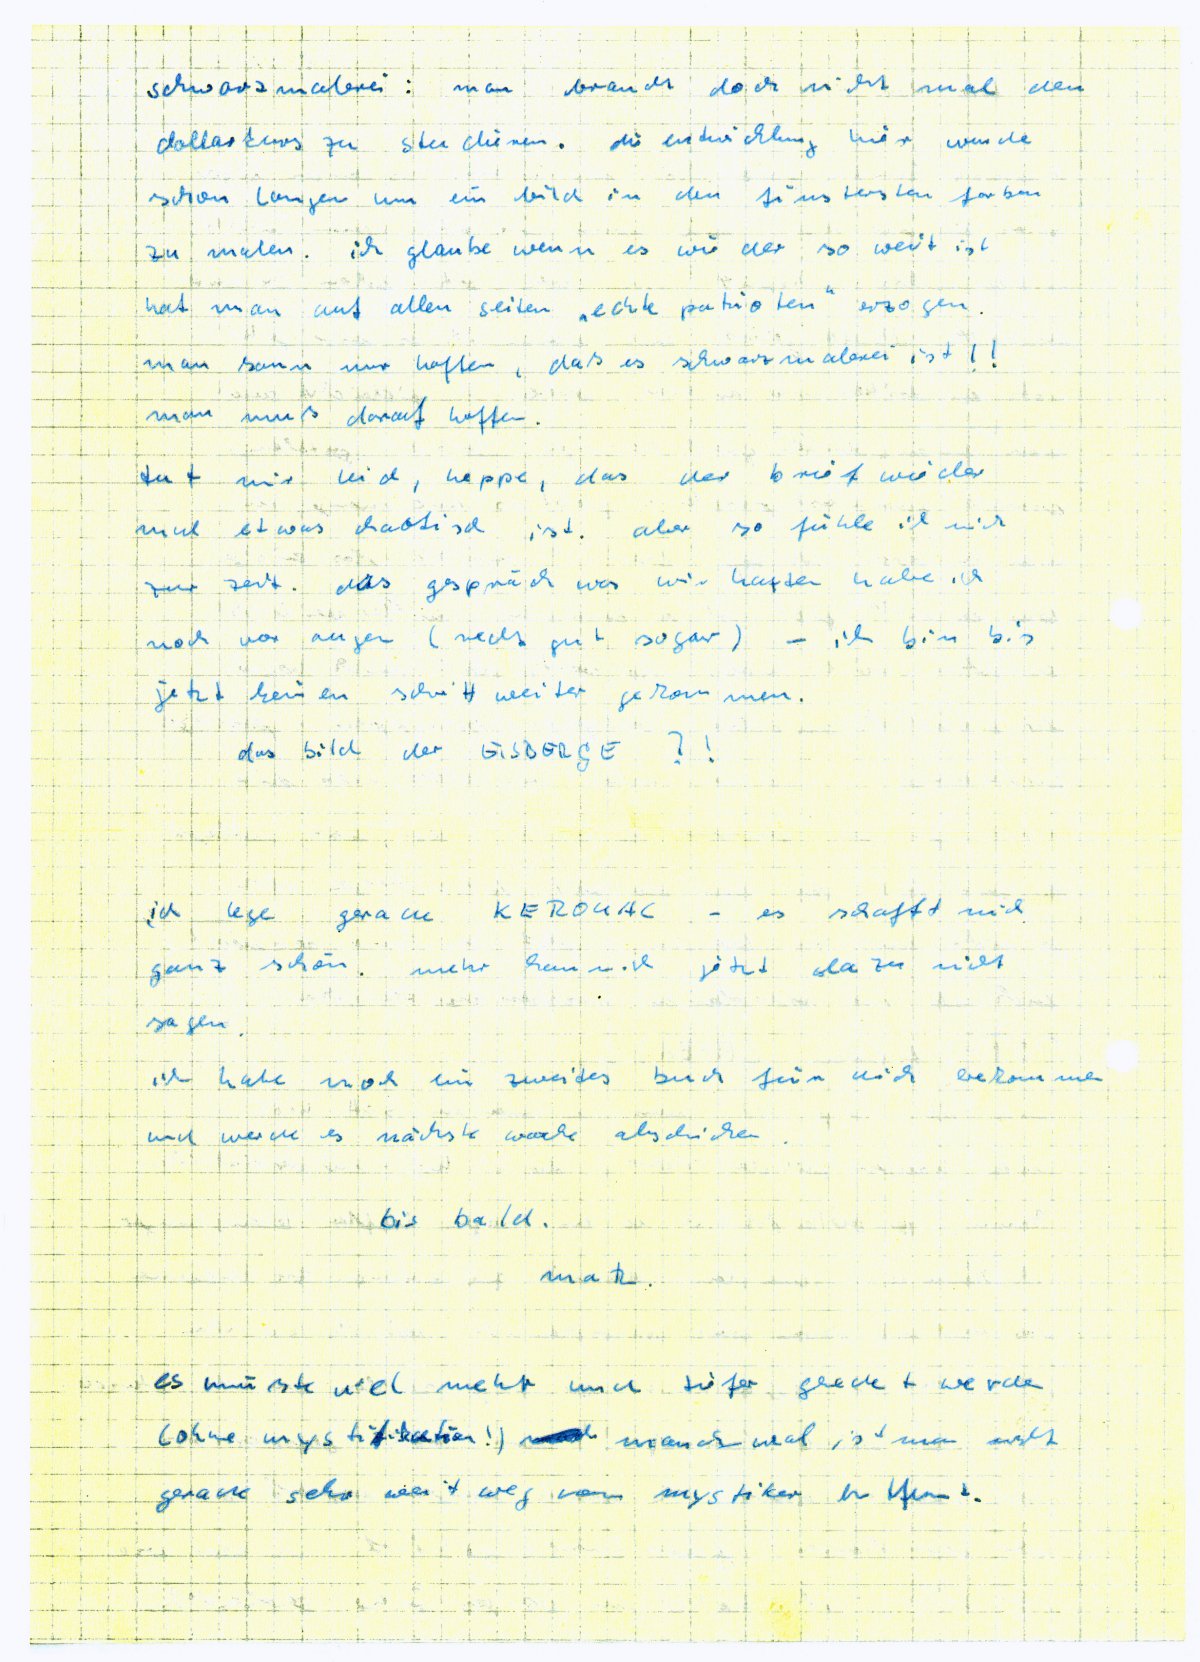 schwarzmalerei: man braucht doch nicht mal den
dollarkurs zu studieren. die entwicklung hier würde
schon langen um ein bild in den finstersten farben
zu malen. ich glaube wenn es wieder so weit ist
hat man auf allen seiten „echte patrioten“ erzogen.
man kann nur hoffen, das es schwarzmalerei ist!!
man muß darauf hoffen.
tut mir leid, heppe, das der brief wieder
mal etwas chaotisch ist. aber so fühle ich mich
zur zeit. das gespräch was wir hatten habe ich
noch vor augen (recht gut sogar) – ich bin bis
jetzt keinen schritt weiter gekommen.
das bild der EISBERGE ?!
ich lese gerade KEROUAC – es schafft mich
ganz schön. mehr kann ich jetzt dazu nicht
sagen.
ich habe noch ein zweites buch für dich bekommen
und werde es nächste woche abschicken.
bis bald.
matz.
es müste viel mehr und tiefer geredet werden
(ohne mystifikation!) manchmal ist man nicht
gerade sehr weit weg vom mystiker entfernt.